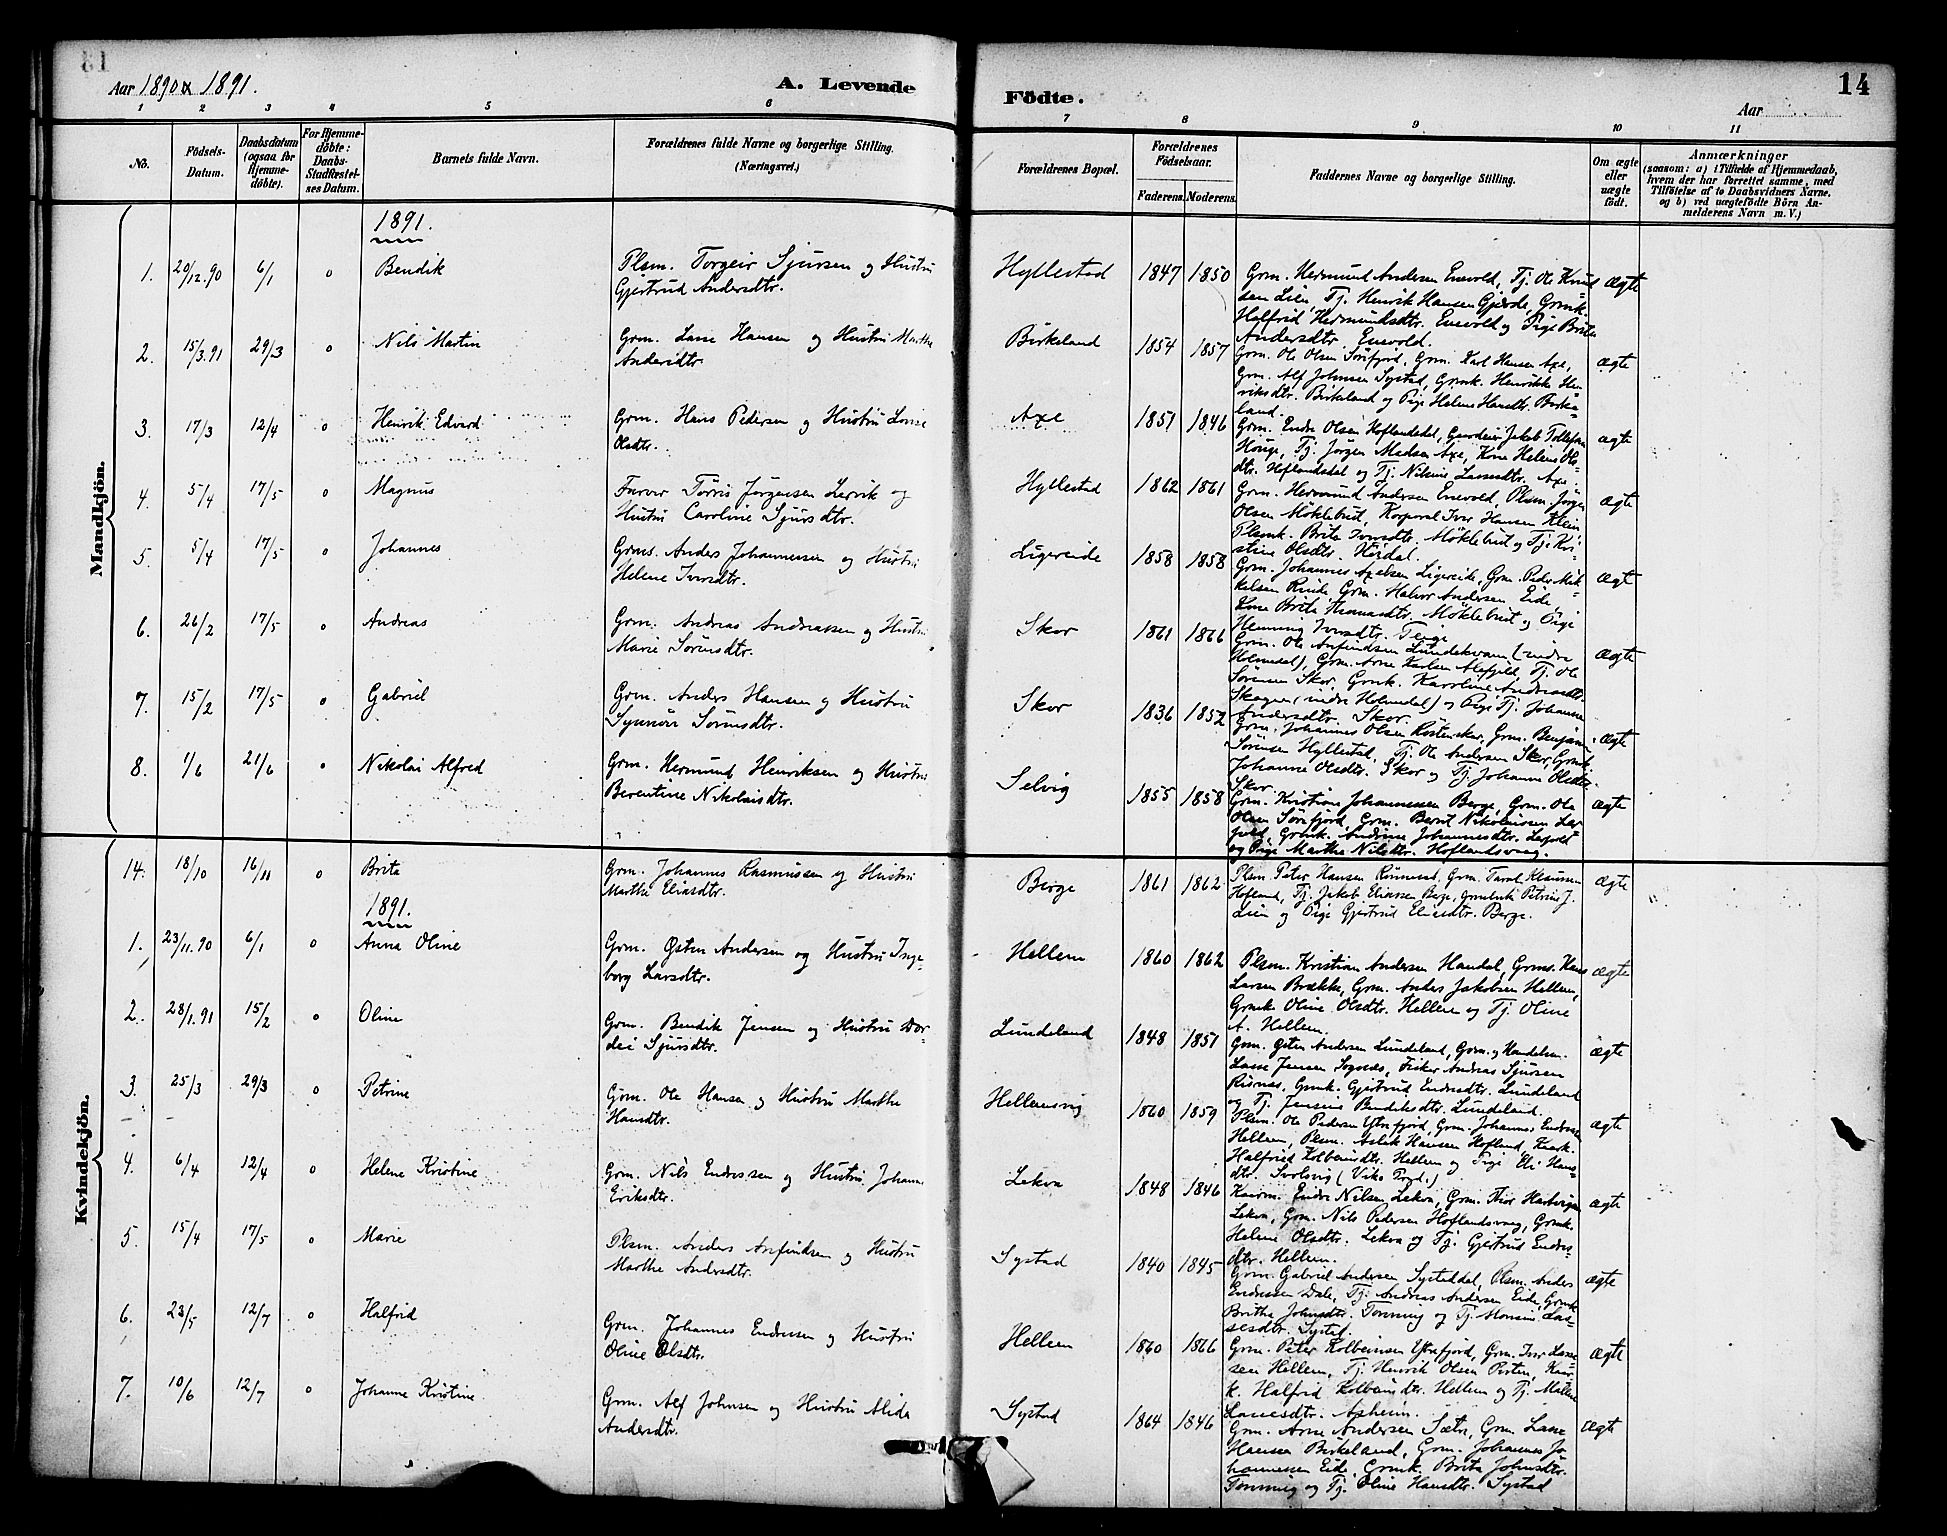 Aar 1890 & 1891.
A. Levende
Födte.
14
Aar
1 2 3 4 5 6 7 8 9 10 11
No.
Födsels-
Datum.
Daabsdatum
(ogsaa for
Hjemme-
döbte).
For Hjemme-
döbte:
Daabs-
Stadfæstel-
ses Datum.
Barnets fulde Navn.
Forældrenes fulde Navne og borgerlige Stilling.
(Næringsvei.)
Forældrenes Bopæl.
Forældrenes
Födselsaar.
Faderens. Moderens.
Faddernes Navne og borgerlige Stilling.
Om ægte
eller
uægte
födt.
Anmærkninger
(saasom: a) i Tilfælde af Hjemmedaab,
hvem der har forrettet samme, med
Tilföielse af to Daabsvidners Navne.
og b) ved uægtefödte Börn An-
melderens Navn m. V.)
Mandkjön.
1891.
1. 20/12.90 6/1 0 Bendik
Plsm. Torgeir Sjursen og Hustru
Gjertrud Andersdtr.
Hyllestad 1847 1850
Grm. Hermund Andersen Enevold, Tj. Ole Knud
sen Lien, Tj. Henrik Hansen Gjerde, Grmk.
Halfrid Hermundsdtr. Enevold og Pige Brita
Andersdtr. Enevold.
Ægte
2. 15/3.91 29/3 0 Nils Martin
Grm. Lasse Hansen og Hustru Marthe
Andersdtr.
Birkeland 1854 1857
Grm. Ole Olsen Sörefjord, Grm. Karl Hansen Axe,
Grm. Alf Johnsen Systad, Grmk. Henrikke Hen
riksdtr. Birkeland og Pige Helene Hansdtr. Birke-
land.
ægte
3. 17/3 12/4 0 Henrik Edvard
Grm. Hans Pedersen og Hustru Lovise
Olsdtr.
Axe 1851 1846
Grm. Endre Olsen Hoflandsdal, Gaardeier Jakob Tollefsen
Houge, Tj. Jörgen Madsen Axe, Kone Helene Ols-
dtr. Hoflandsdal og Tj. Nikine Larsdtr. Axe.
ægte
4. 5/4 17/5 0 Magnus
Furer Törris Jörgensen Lervik og
Hustru Caroline Sjursdtr.
Hyllestad 1862 1861
Grm. Hermund Andersen Enevold, Plsm. Jörgen
Olsen Möklebust, Korporal Iver Hansen Klein
Plsmk. Brita Iversdtr. Möklebust og Tj. Kri-
stine Olsdtr. Hordal.
ægte
5. 5/4 17/5 0 Johannes
Grms. Anders Johannessen og Hustru
Helene Iversdtr.
Ligereide 1858 1858
Grm. Johannes Axelsen Ligereide, Grm. Peder Mik-
kelsen Rinde, Grm. Halvor Andersen Eide,
Kone Brita Thomasdtr. Möklebust og Pige
Hemming Iversdtr. Teige
ægte
6. 26/2 17/5 0 Andreas
Grm. Andreas Andreassen og Hustru
Marie Sörensdtr.
Skor 1861 1866
Grm. Ole Anfindsen Lundekvam (indre
Holmedal), Grm. Arne Karlsen Alefjeld, Tj. Ole
Sörensen Skor, Grmk. Karoline Andreasdtr.
Skagen (indre Holmedal) og Pige Tj. Johanne
Andersdtr. Skor.
Ægte
7. 15/2 17/5 0 Gabriel
Grm. Anders Hansen og Hustru
Synnöve Sörensdtr.
Skor 1836 1852
Grm. Johannes Olsen Rosteneskar, Grm. Benjamin
Sörensen Hyllestad, Tj. Ole Andersen Skor, Grmk.
Johanne Olsdtr. Skor og Tj. Johanne Olsdtr.
Skor.
Ægte
8. 1/6 21/6 0 Nikolai Alfred
Grm. Hermund Henriksen og Hustru
Berentine Nikolaisdtr.
Selvig 1855 1858
Grm. Kristian Johannessen Berge, Grm. Ole
Olsen Sörefjord, Grm. Bernt Nikolaissen Lar
Grmk. Andrine Johannesdtr.
og Pige Marthe Nilsdtr. Hoflandsvaag.
ægte
Kvindekjön.
14. 18/10 16/11 0 Brita
Grm. Johannes Rasmussen og Hustru
Marthe Eliasdtr.
Berge 1861 1862
Plsm. Peter Hansen Risnesed, Grm. Tarat Klausen
Hofland, Tj. Jakob Eliassen Berge, Petrine J.
Lien og Pige Gjertrud Eliasdtr. Berge.
Ægte
1891.
1. 23/11.90 6/1 0 Anna Oline
Grm. Østen Andersen og Hustru Inge-
borg Larsdtr.
Hellem 1860 1862
Plsm. Kristian Andersen Handal, Grms. Hans
Larsen Brække, Grm. Anders Jakobsen Hellem,
Grmk. Oline Olsdtr. Hellem og Tj. Oline
A. Hellem.
ægte
2. 28/1.91 15/2 0 Oline
Grm. Bendik Jensen og Hustru Dor-
dei Sjursdtr.
Lundeland 1848 1851
Grm. Østen Andersen Lundeland, Grm. og Handelsm.
Lasse Jensen Sognnæs, Fisker Andreas Sjursen
Risnæs, Grmk. Gjertrud Endresdtr. Lundeland
og Tj. Jensine Bendiksdtr. Lundeland.
ægte
3. 25/3 29/3 0 Petrine
Grm. Ole Hansen og Hustru Marthe
Hansdtr.
Hellemsvig 1860 1859
Plsm. Ole Pedersen Ytrefjord, Grm. Johannes Endresen
Hellem, Plsm. Aslak Hansen Hofland, Kaark.
Halfrid Kolbeinsdtr. Hellem og Pige Eli Hans
dtr. Svolsvig (Viks Prgd.)
ægte
4. 6/4 12/4 0 Helene Kristine
Grm. Nils Endressen og Hustru Johanne
Eriksdtr.
Lekva 1848 1846
Kaarm. Endre Nilsen Lekva, Grm. Thor Hartvigsen
Lekva, Grm. Nils Pedersen Hoflandsvaag, Grmk.
Helene Olsdtr. Lekva og Tj. Gjertrud Endres
dtr. Hellem.
ægte
5. 15/4 17/5 0 Marie
Plsm. Anders Anfindsen og Hustru
Marthe Andersdtr.
Systad 1840 1845
Grm. Gabriel Andersen Systaddal, Plsm. Anders
Endresen Dale, Tj. Andreas Andersen Eide, Grmk.
Britha Johnsdtr. Tonning og Tj. Monsine Las-
sesdtr. Systad.
ægte
6. 23/5 12/7 0 Halfrid
Grm. Johannes Endresen og Hustru
Oline Olsdtr.
Hellem 1860 1866
Grm. Peter Kolbeinsen Ytrefjord, Grm. Iver Lasse
sen Hellem, Tj. Henrik Olsen Porten, Kaar-
k. Halfrid Kolbeinsdtr. Hellem og Tj. Malene
Lassesdtr. Asheim.
ægte
7. 10/6 12/7 0 Johanne Kristine
Grm. Alf Johnsen og Hustru Alida
Andersdtr.
Systad 1864 1846
Grm. Arne Andersen Sætre, Grm. Lasse
Hansen Birkeland, Grm. Johannes Jo
hannessen Eide, Grmk. Brita Johnsdtr.
Tonning og Tj. Oline Hansdtr. Systad
Ægte